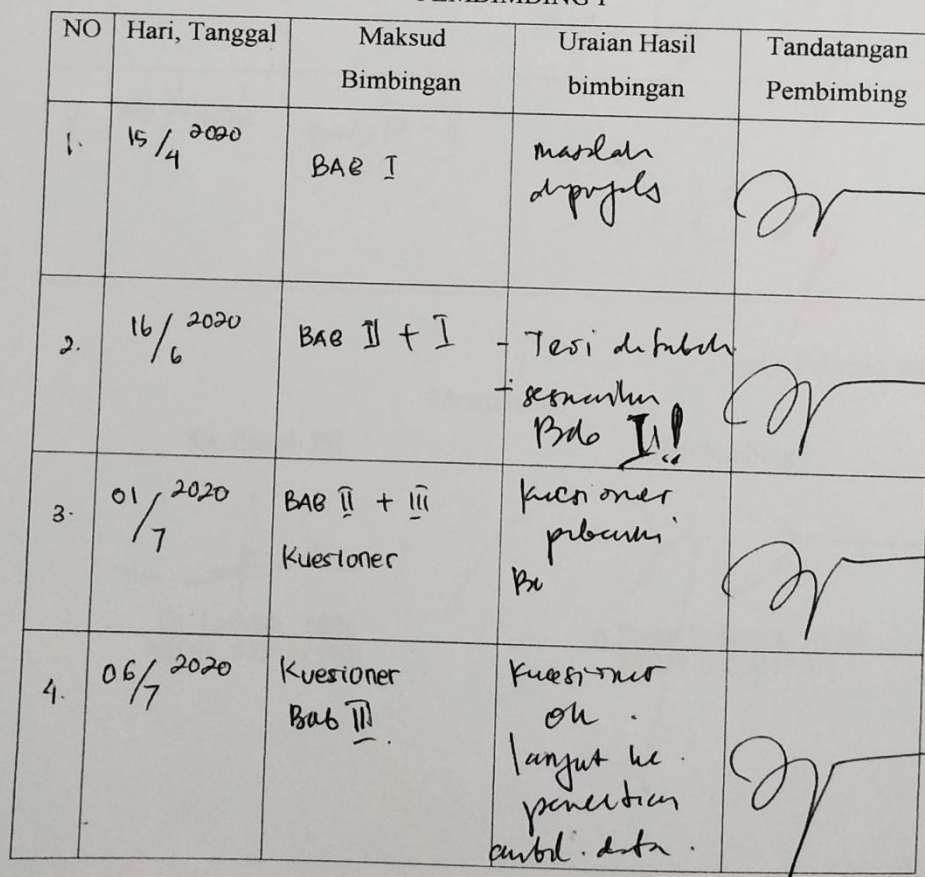 PEMBIMBING I
NO Hari, Tanggal Maksud Bimbingan Uraian Hasil bimbingan Tandatangan Pembimbing
1. 15/4 2020 BAB I
masalah
diperjelas
2. 16/6 2020 BAB II + I
- Teori ditambah
- sesuaikan
Bab II!
3. 01/7 2020 BAB II + III
Kuesioner
kuesioner
perbaiki
4. 06/7 2020 Kuesioner
Bab III.
Kuesioner
ok.
lanjut ke.
penelitian
ambil. data.